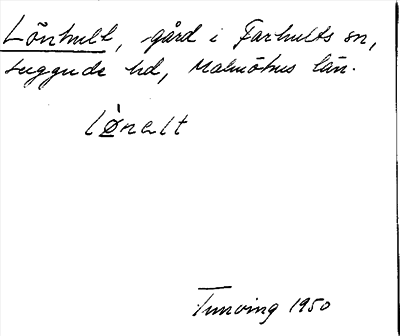 Lönhult, gård i Farhults sn,
Luggude hd, Malmöhus län.
lønelt
Tunving 1950